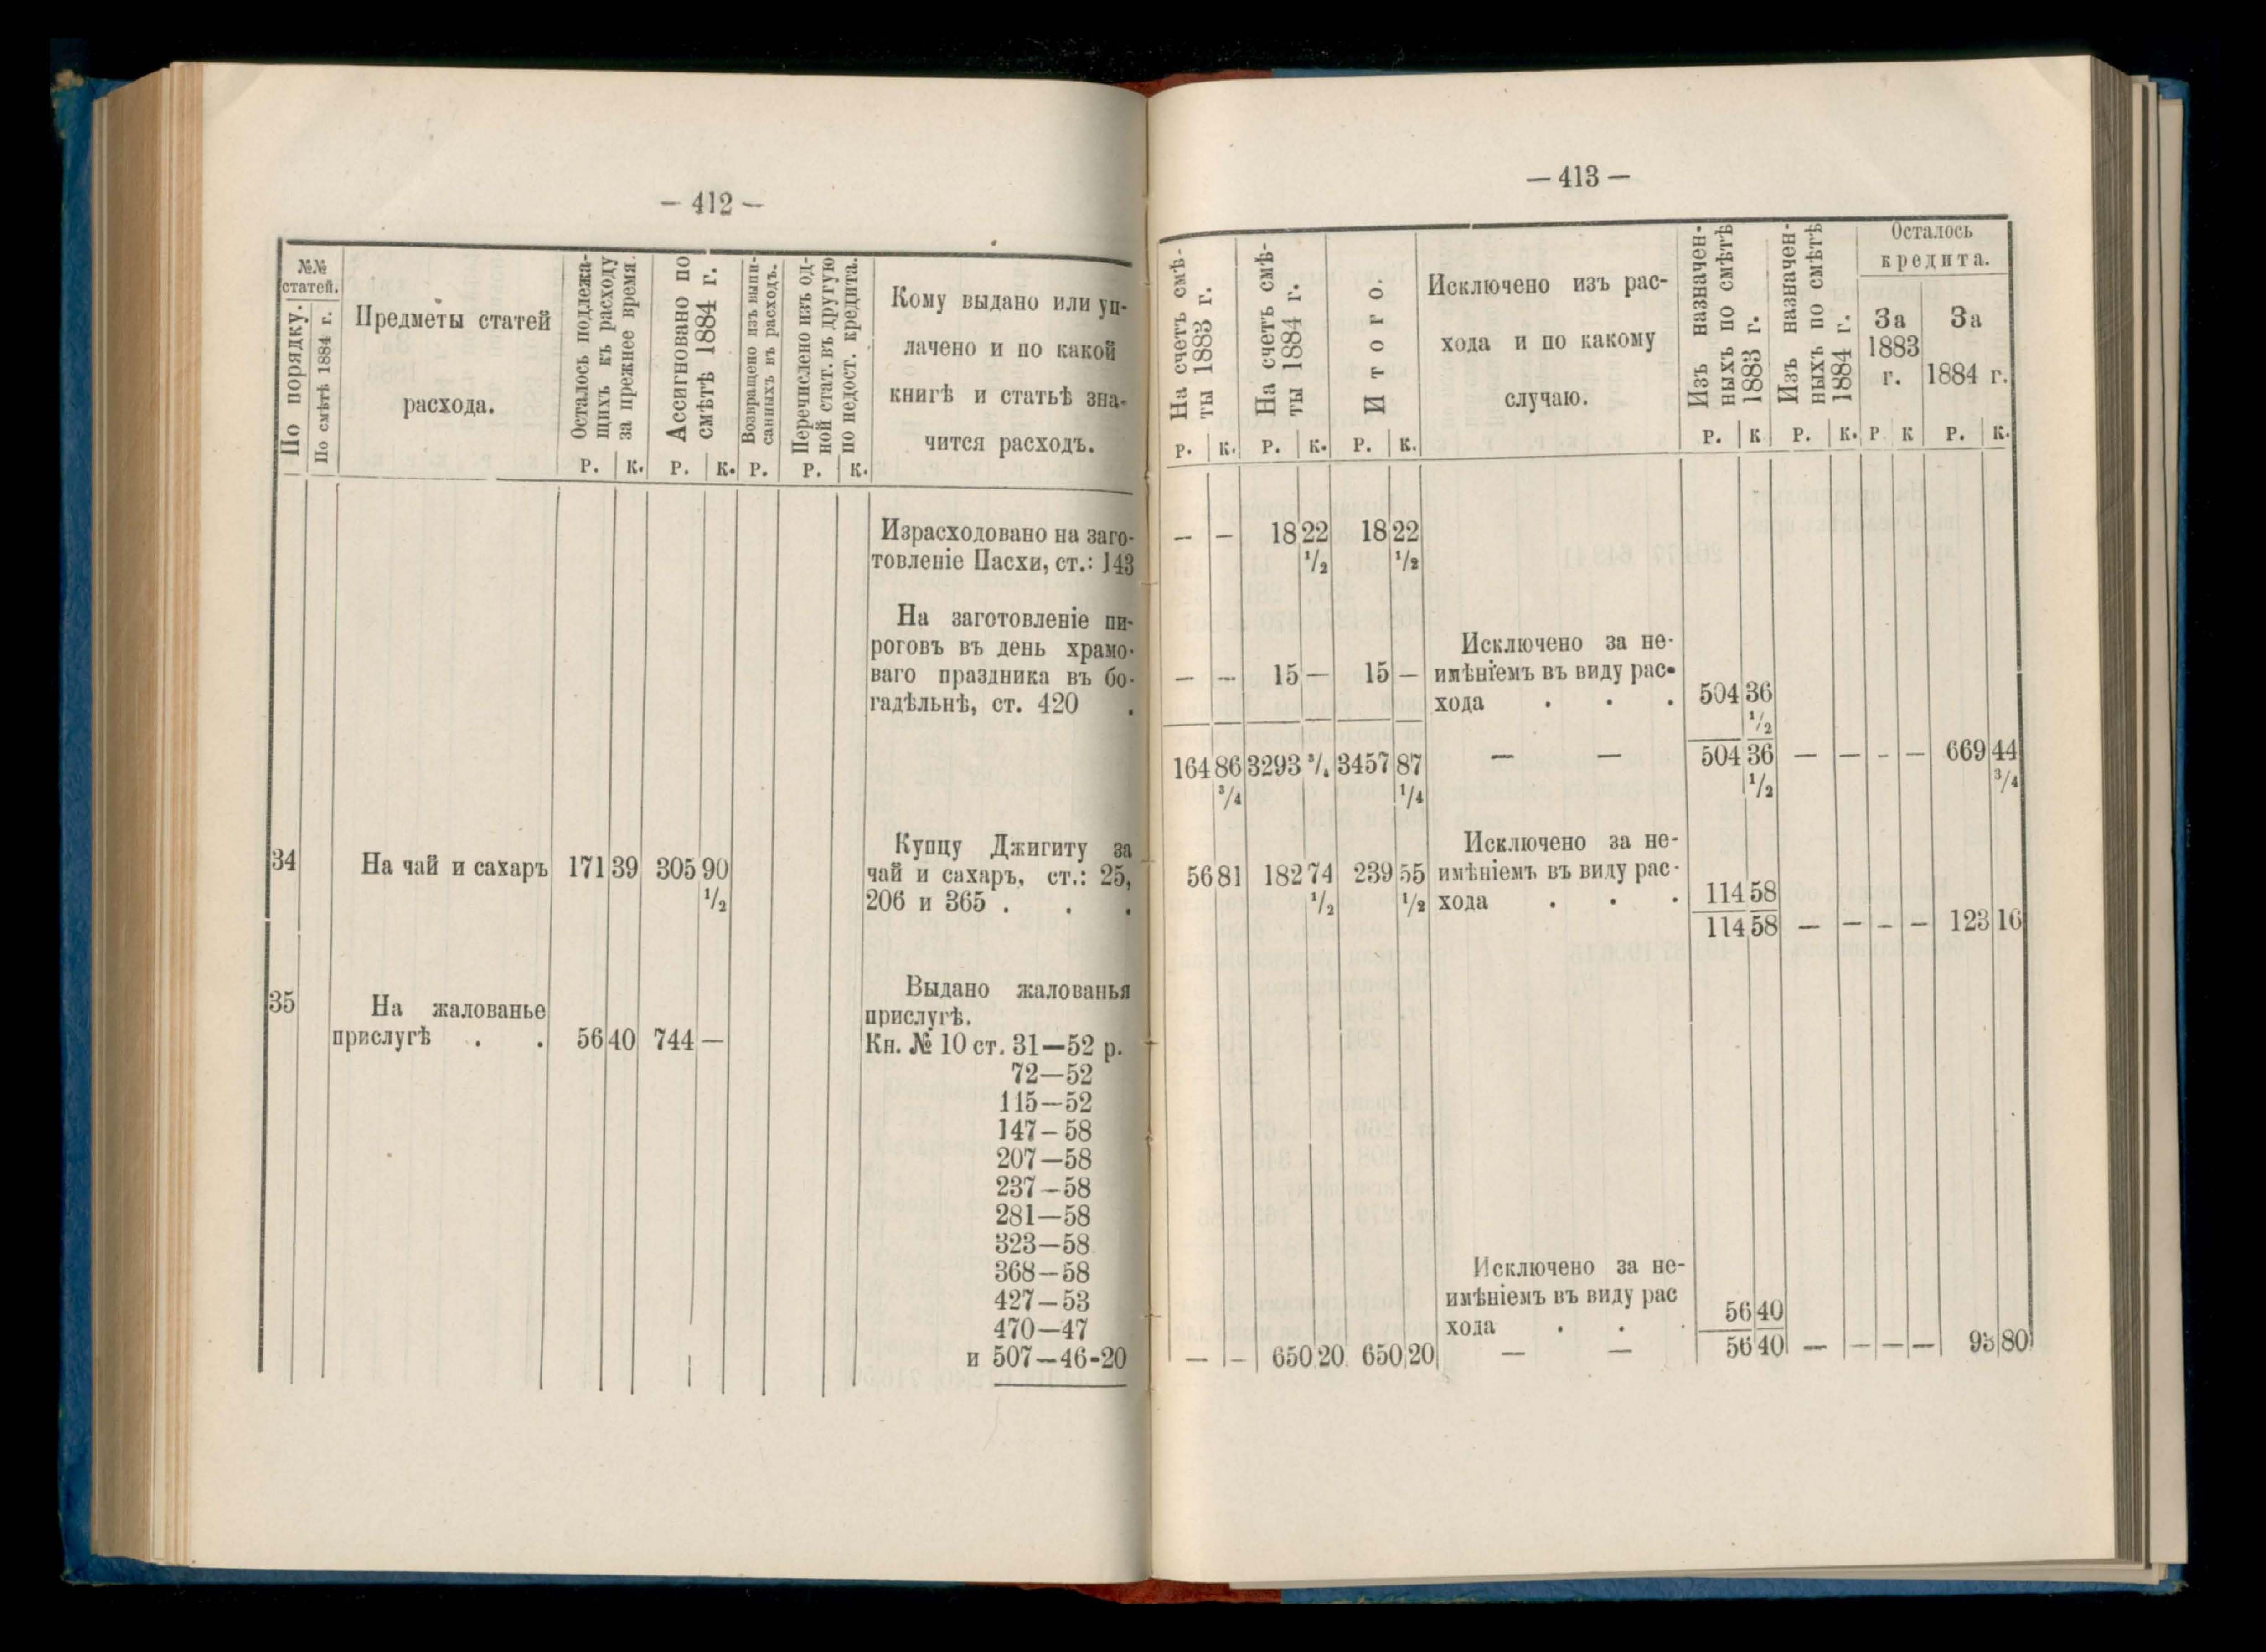 — 412 —
№№ статей.
По порядку.
По смѣтѣ 1884 г.
Предметы статей
расхода.
Осталось подлежа-
щихъ къ расходу
за прежнее время.
Р. К.
Ассигновано по
смѣтѣ 1884 г.
Р. К.
Возвращено изъ выпи-
санныхъ въ расходъ.
Р.
Перечислено изъ од-
ной стат. въ другую
по недост. кредита.
Р. К.
Кому выдано или уп-
лачено и по какой
книгѣ и статьѣ зна-
чится расходъ.
Израсходовано на заго-
товленіе Пасхи, ст.: 143
На заготовленіе пи-
роговъ въ день храмо-
ваго праздника въ бо-
гадѣльнѣ, ст. 420 .
34 На чай и сахаръ 171 39 305 90 1/2
Купцу Джигиту за
чай и сахаръ, ст.: 25,
206 и 365 . . .
35 На жалованье
прислугѣ . . 56 40 744 —
Выдано жалованья
прислугѣ.
Кн. № 10 ст. 31—52 р.
72—52
115—52
147—58
207—58
237—58
281—58
323—58
368—58
427—53
470—47
и 507—46-20
— 413 —
На счетъ смѣ-
ты 1883 г.
Р. К.
На счетъ смѣ-
ты 1884 г.
Р. К.
Итого.
Р. К.
Исключено изъ рас-
хода и по какому
случаю.
Изъ назначен-
ныхъ по смѣтѣ
1883 г.
Р. К
Изъ назначен-
ныхъ по смѣтѣ
1884 г.
Р. К.
Осталось
кредита.
За
1883
г.
Р К
За
1884 г.
Р. К.
— — 18 22 1/2 18 22 1/2
— — 15 — 15 —
Исключено за не-
имѣніемъ въ виду рас-
хода . . . 504 36 1/2
164 86 3/4 3293 3/4 3457 87 1/4 — — 504 36 1/2 — — - — 669 44 3/4
56 81 182 74 1/2 239 55 1/2
Исключено за не-
имѣніемъ въ виду рас-
хода . . . 114 58
114 58 — — - — 123 16
Исключено за не-
имѣніемъ въ виду рас
хода . . . 56 40
— — 650 20 650 20 — — 56 40 — — — — 93 80